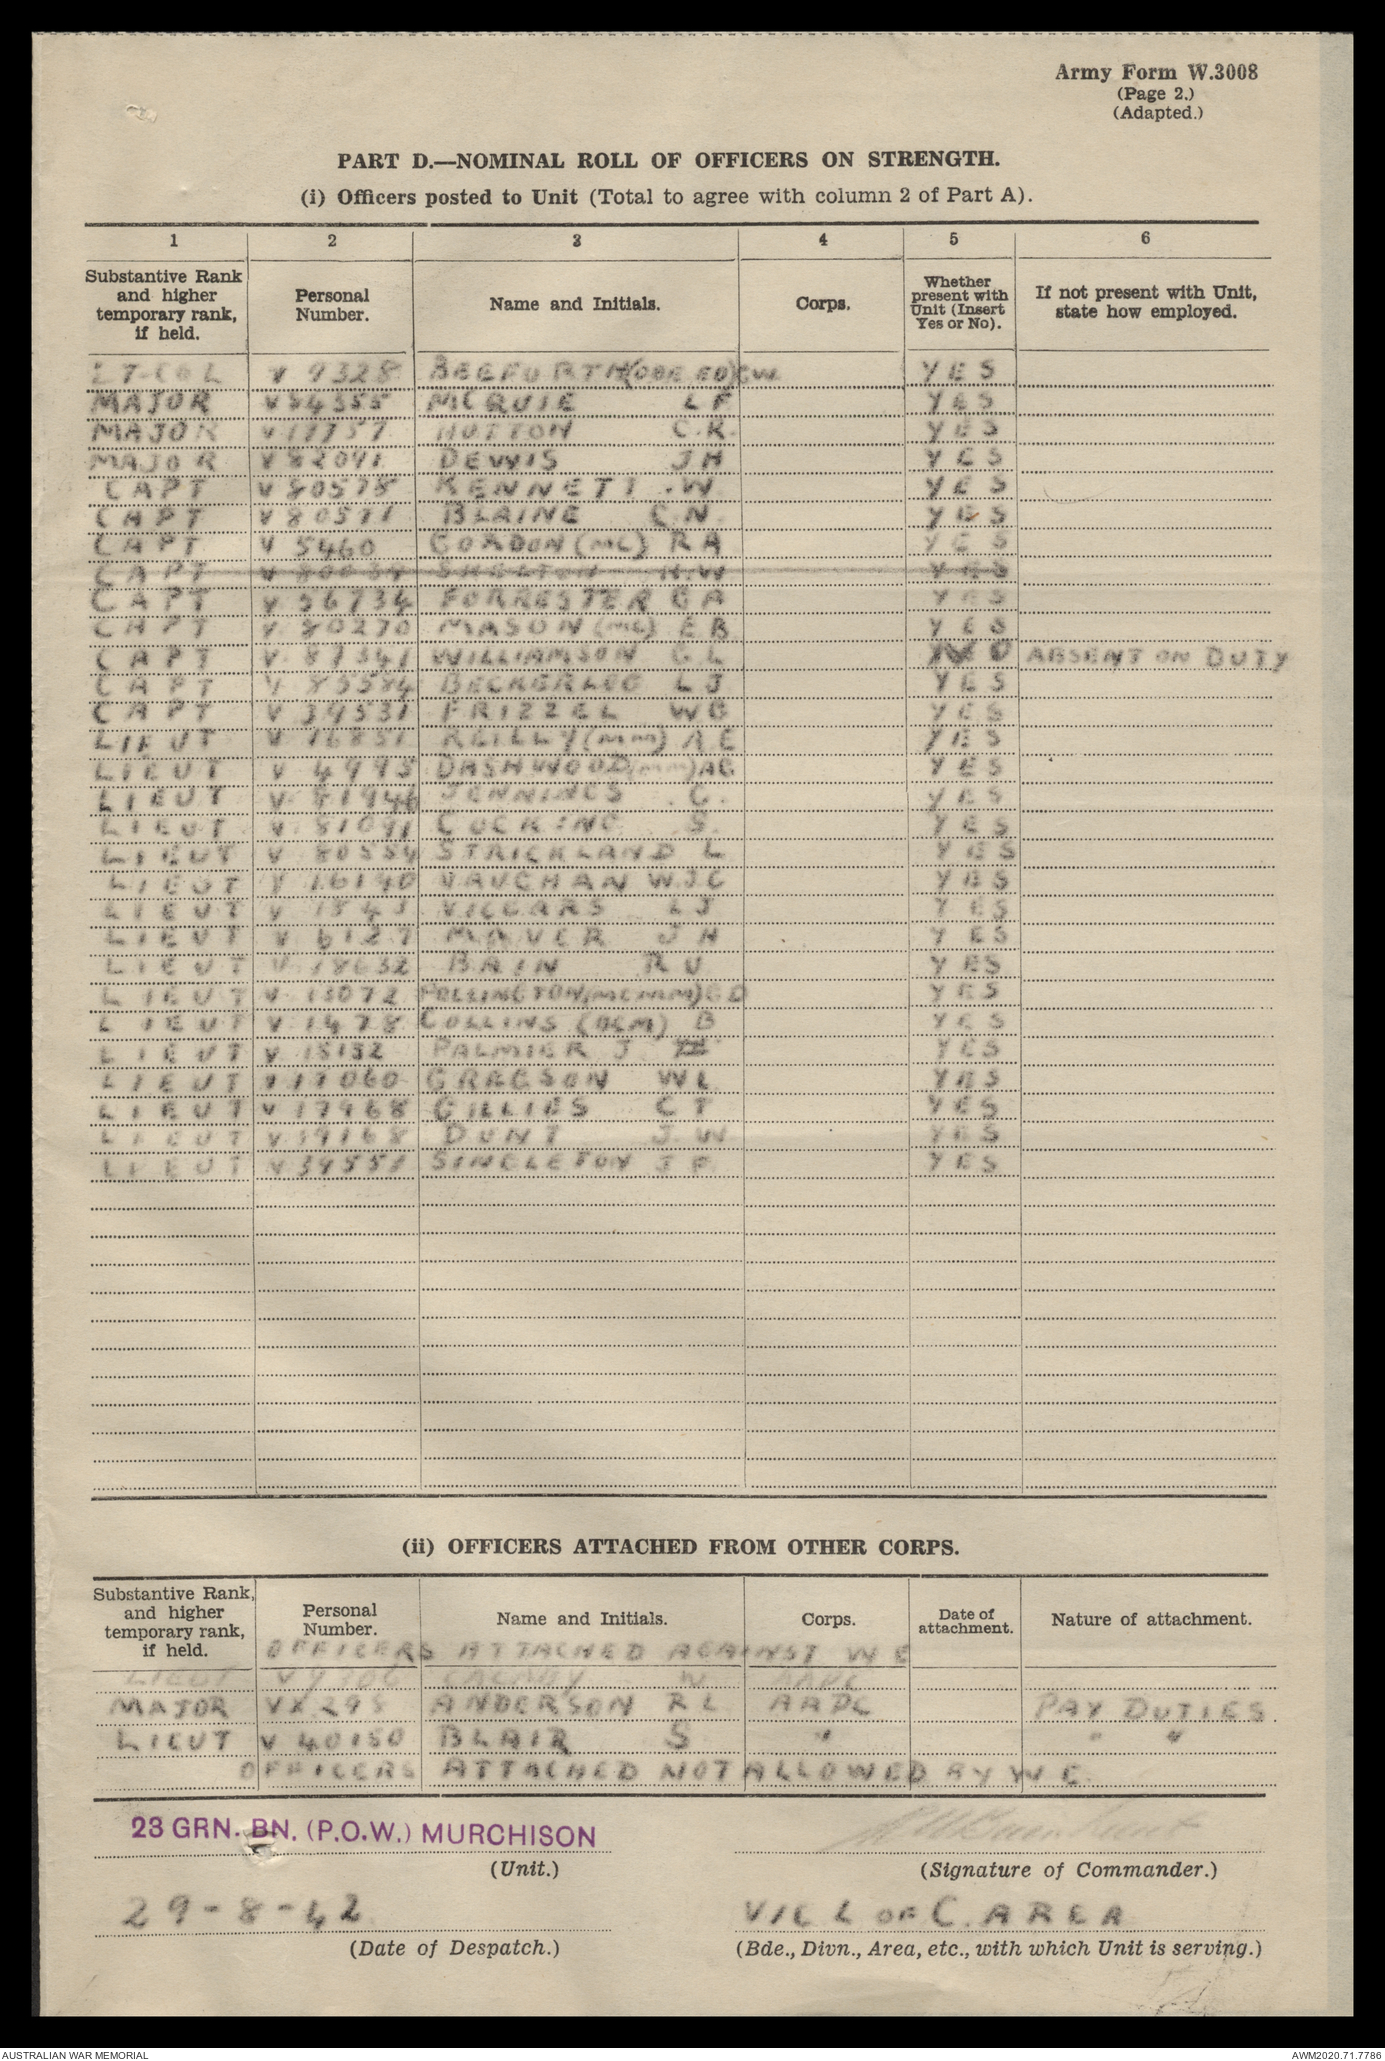 Army Form W.3008
(Page 2.)
(Adapted.)
PART D.—NOMINAL ROLL OF OFFICERS ON STRENGTH.
(i) Officers posted to Unit (Total to agree with column 2 of Part A).
1 2 3 4 5 6
Substantive Rank and higher temporary rank, if held. Personal Number. Name and Initials. Corps. Whether present with Unit (Insert Yes or No). If not present with Unit, state how employed.
LT-COL V 9328 (OBE ED) YES
MAJOR MCQUIE L F YES
MAJOR V 17757 HUTTON C.K. YES
MAJOR V 82091 DEWIS J H YES
CAPT V 80578 KENNETT .W YES
CAPT V 80571 BLAINE C.N. YES
CAPT V 5460 GORDON (MC) R A YES
CAPT SHELTON H.W YES
CAPT V 56734 FORRESTER G A YES
CAPT V 80270 MASON (MC) E B YES
CAPT V 87341 WILLIAMSON G L NO ABSENT ON DUTY
CAPT V 85584 BECKERLEG L J YES
CAPT V 34531 FRIZZEL W G YES
LIEUT V 16851 REILLY (MM) A E YES
LIEUT V 4995 DASHWOOD (MM) AG YES
LIEUT V 81946 JENNINGS . G. YES
LIEUT V 81091 COCKING S. YES
LIEUT V 80554 STRICKLAND L YES
LIEUT V 16140 VAUGHAN W.J.C YES
LIEUT VICCARS L J YES
LIEUT V 6127 J H YES
LIEUT V 18632 BAIN R U YES
LIEUT V 15072 POLLINGTON (MC MM) G D YES
LIEUT V 1478 COLLINS (DCM) B YES
LIEUT V 15132 PALMER J YES
LIEUT V 17060 GREGSON W L YES
LIEUT V 17968 GILLIES C T YES
LIEUT V 39168 DUNT J.W YES
LIEUT V 39551 SINGLETON J F. YES
(ii) OFFICERS ATTACHED FROM OTHER CORPS.
Substantive Rank, and higher temporary rank, if held. Personal Number. Name and Initials. Corps. Date of attachment. Nature of attachment.
OFFICERS ATTACHED AGAINST W E
LIEUT W
MAJOR VX 295 ANDERSON R L AAPC PAY DUTIES.
LIEUT V 40150 BLAIR S " " "
OFFICERS ATTACHED NOT ALLOWED BY W E.
23 GRN. BN. (P.O.W.) MURCHISON
(Unit.) (Signature of Commander.)
29-8-42 VIC L OF C. AREA
(Date of Despatch.) (Bde., Divn., Area, etc., with which Unit is serving.)
AUSTRALIAN WAR MEMORIAL AWM2020.71.7786